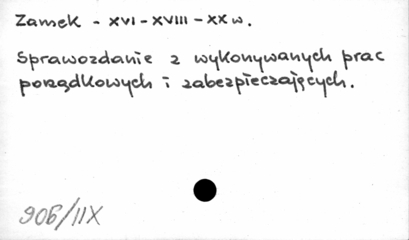 Zamek - XVI - XVIII - XX w.
Sprawozdanie z wykonywanych prac
porządkowych i zabezpieczających.
906/IIX